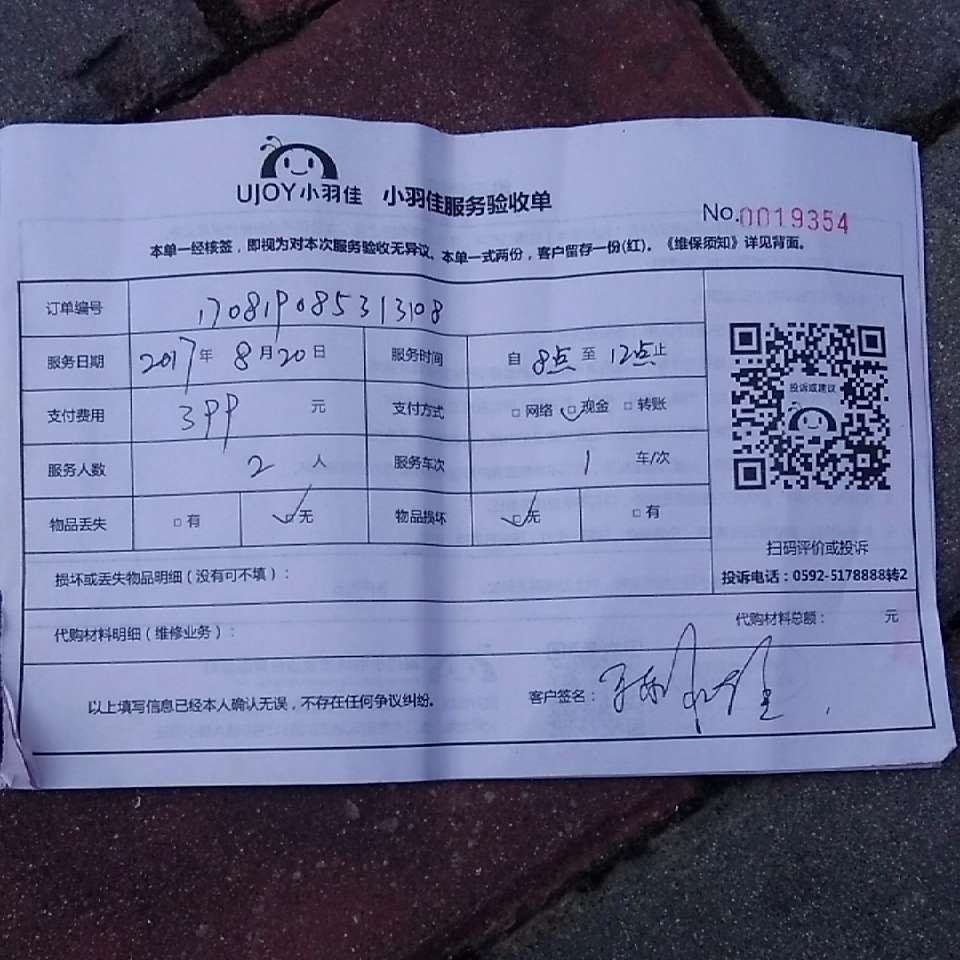 UJOY小羽佳 小羽佳服务验收单
No.0019354
本单一经核签，即视为对本次服务验收无异议。本单一式两份，客户留存一份(红)。《维保须知》详见背面。
订单编号 170819085313108
服务日期 2017年 8月20日 服务时间 自 8点 至 12点止
支付费用 399 元 支付方式 □网络 □现金 □转账
服务人数 2 人 服务车次 1 车/次
物品丢失 □有 □无 物品损坏 □无 □有
投诉或建议
扫码评价或投诉
投诉电话：0592-5178888转2
损坏或丢失物品明细（没有可不填）：
代购材料明细（维修业务）： 代购材料总额： 元
以上填写信息已经本人确认无误，不存在任何争议纠纷。 客户签名：